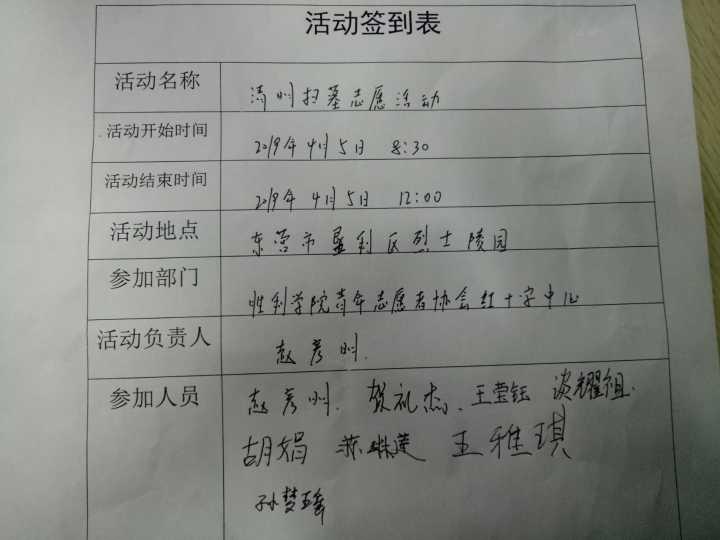 活动签到表
活动名称 清明扫墓志愿活动
活动开始时间 2019年4月5日 8:30
活动结束时间 2019年4月5日 12:00
活动地点 东营市垦利区烈士陵园
参加部门 胜利学院青年志愿者协会红十字中心
活动负责人 赵彦
参加人员 赵彦 贺礼杰、王莹钰 谈耀组
胡娟 苏琳莲 王雅琪
孙梦瑶